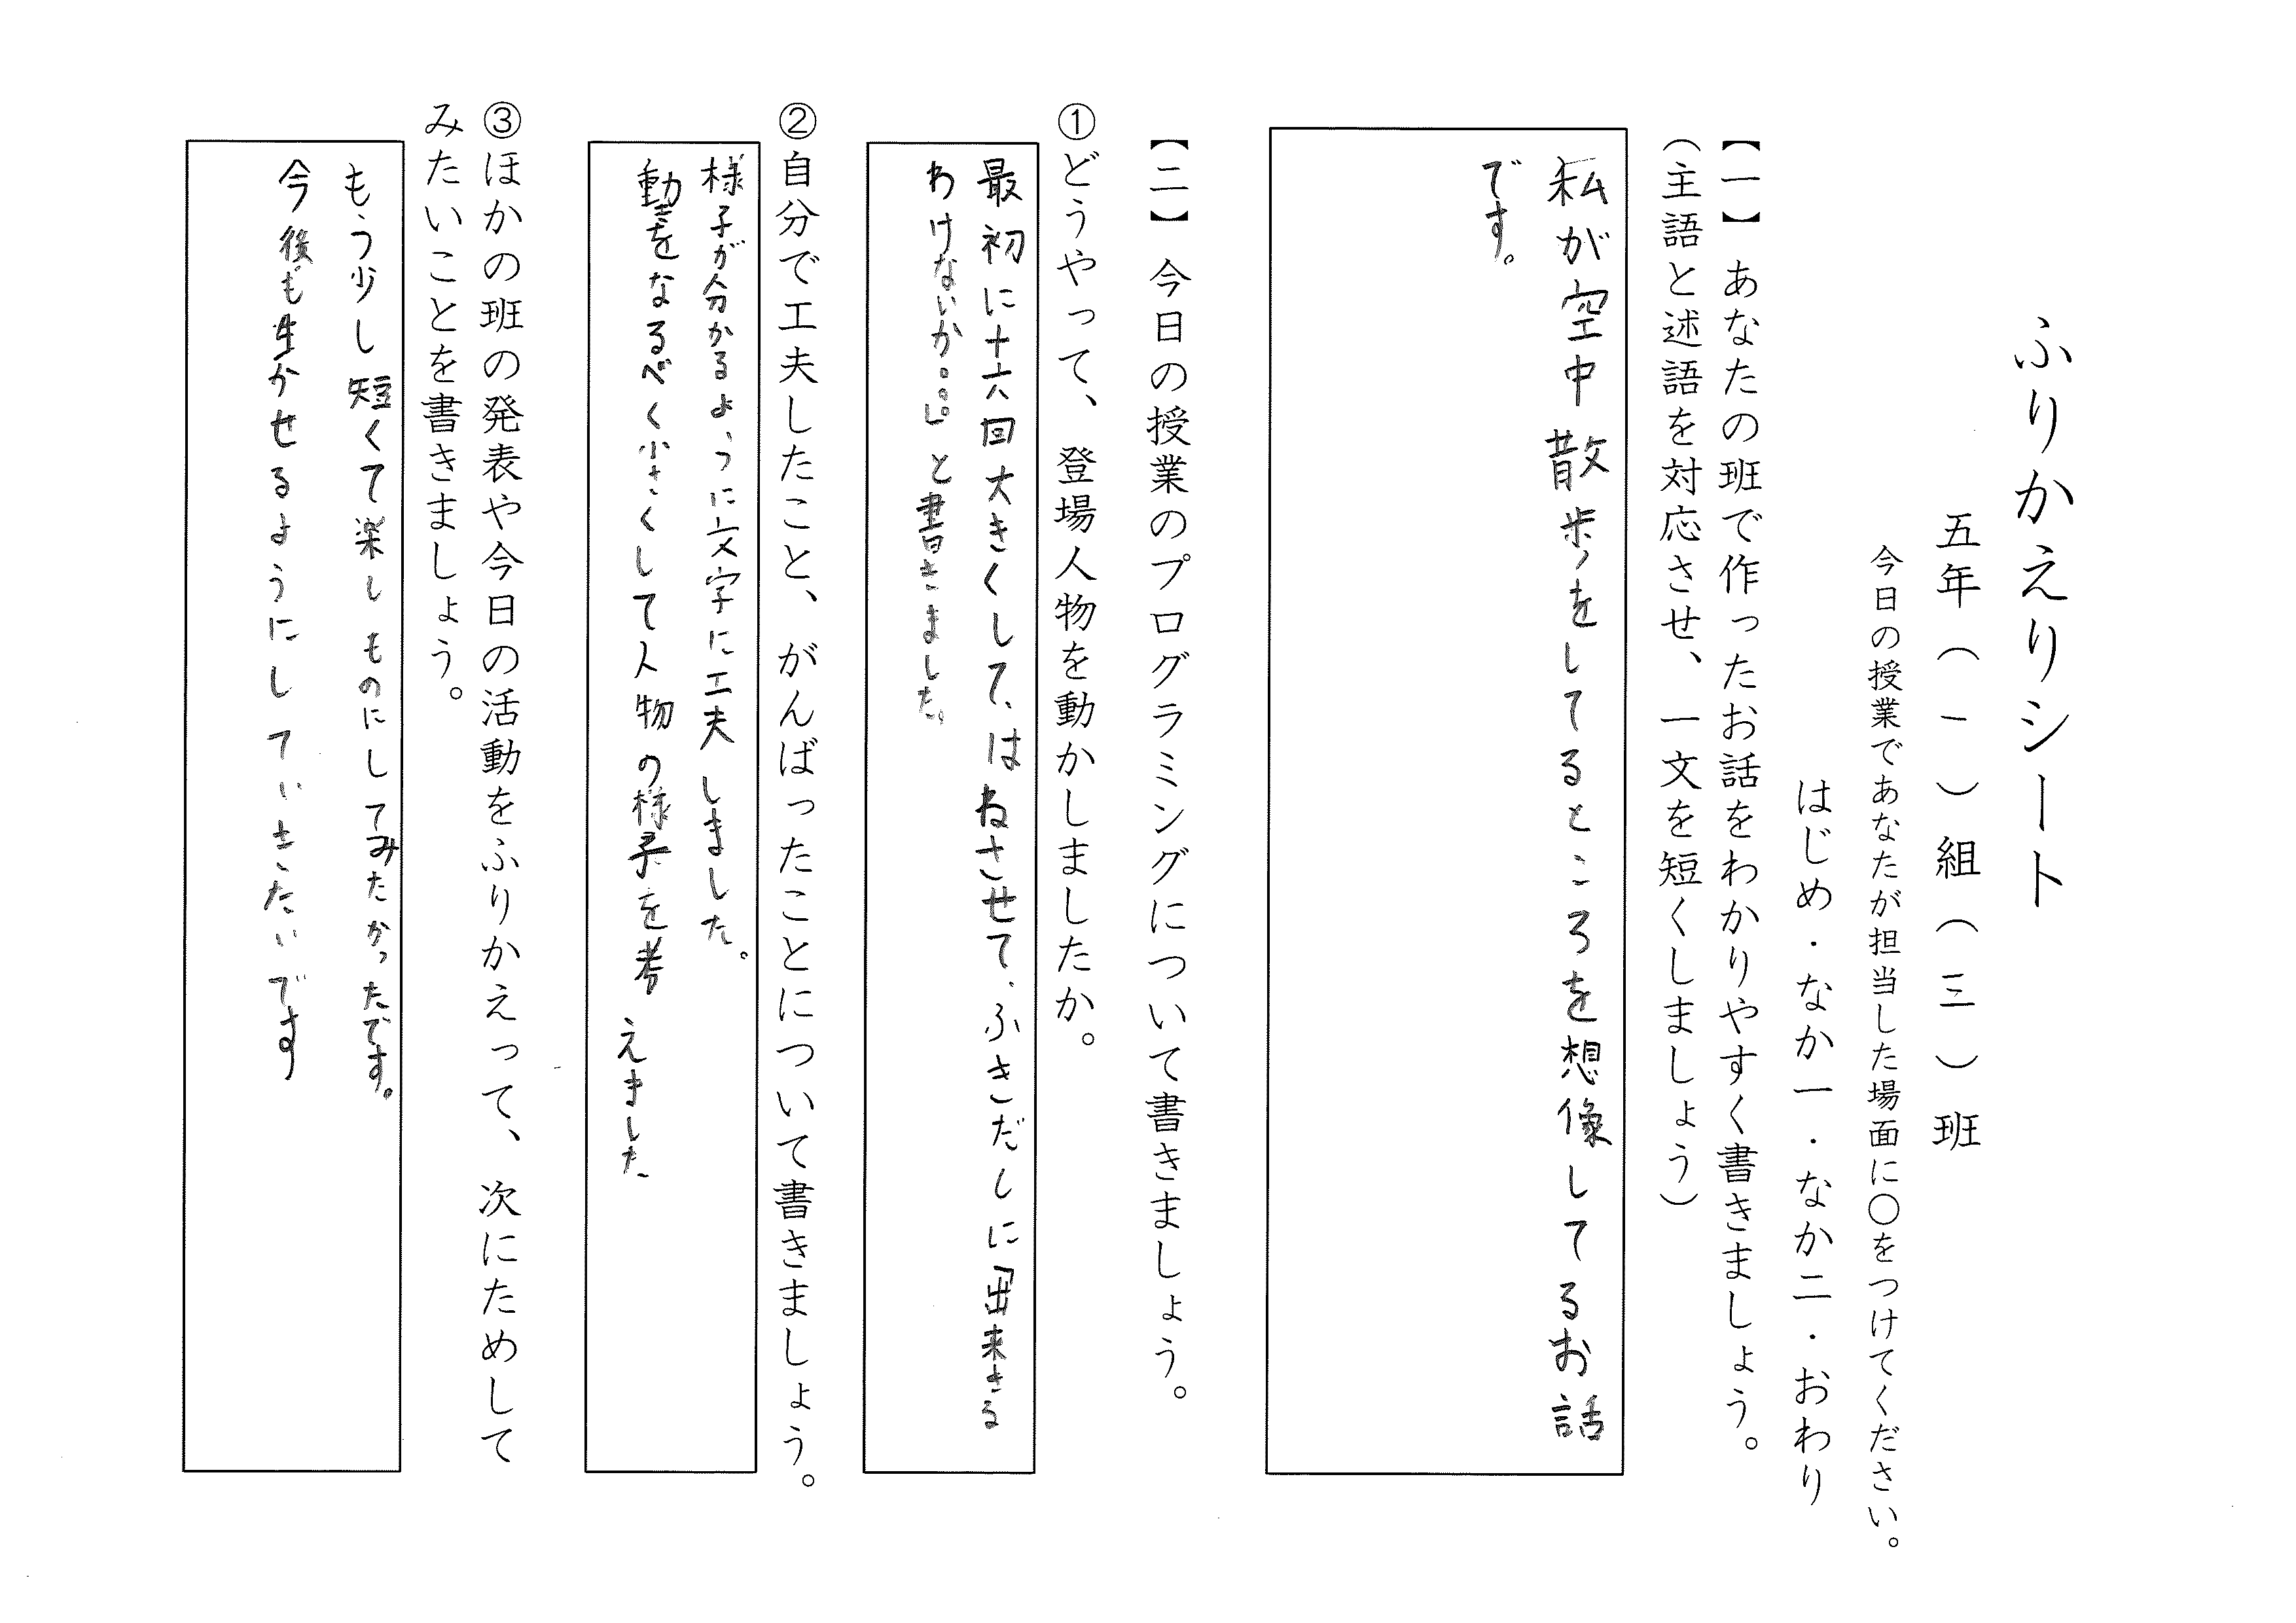 ふりかえりシート
五年（一）組（三）班
今日の授業であなたが担当した場面に〇をつけてください。
はじめ・なか一・なか二・おわり
【一】あなたの班で作ったお話をわかりやすく書きましょう。
（主語と述語を対応させ、一文を短くしましょう）
私が空中散歩をしてるところを想像してるお話
です。
【二】今日の授業のプログラミングについて書きましょう。
①どうやって、登場人物を動かしましたか。
最初に十六回大きくして、はねさせて、ふきだしに「出来きる
わけないか。。。」と書きました。
②自分で工夫したこと、がんばったことについて書きましょう。
様子が分かるように文字に工夫しました。
動きをなるべく小さくして人物の様子を考えました
③ほかの班の発表や今日の活動をふりかえって、次にためして
みたいことを書きましょう。
もう少し短くて楽しものにしてみたかったです。
今後も生かせるようにしていきたいです